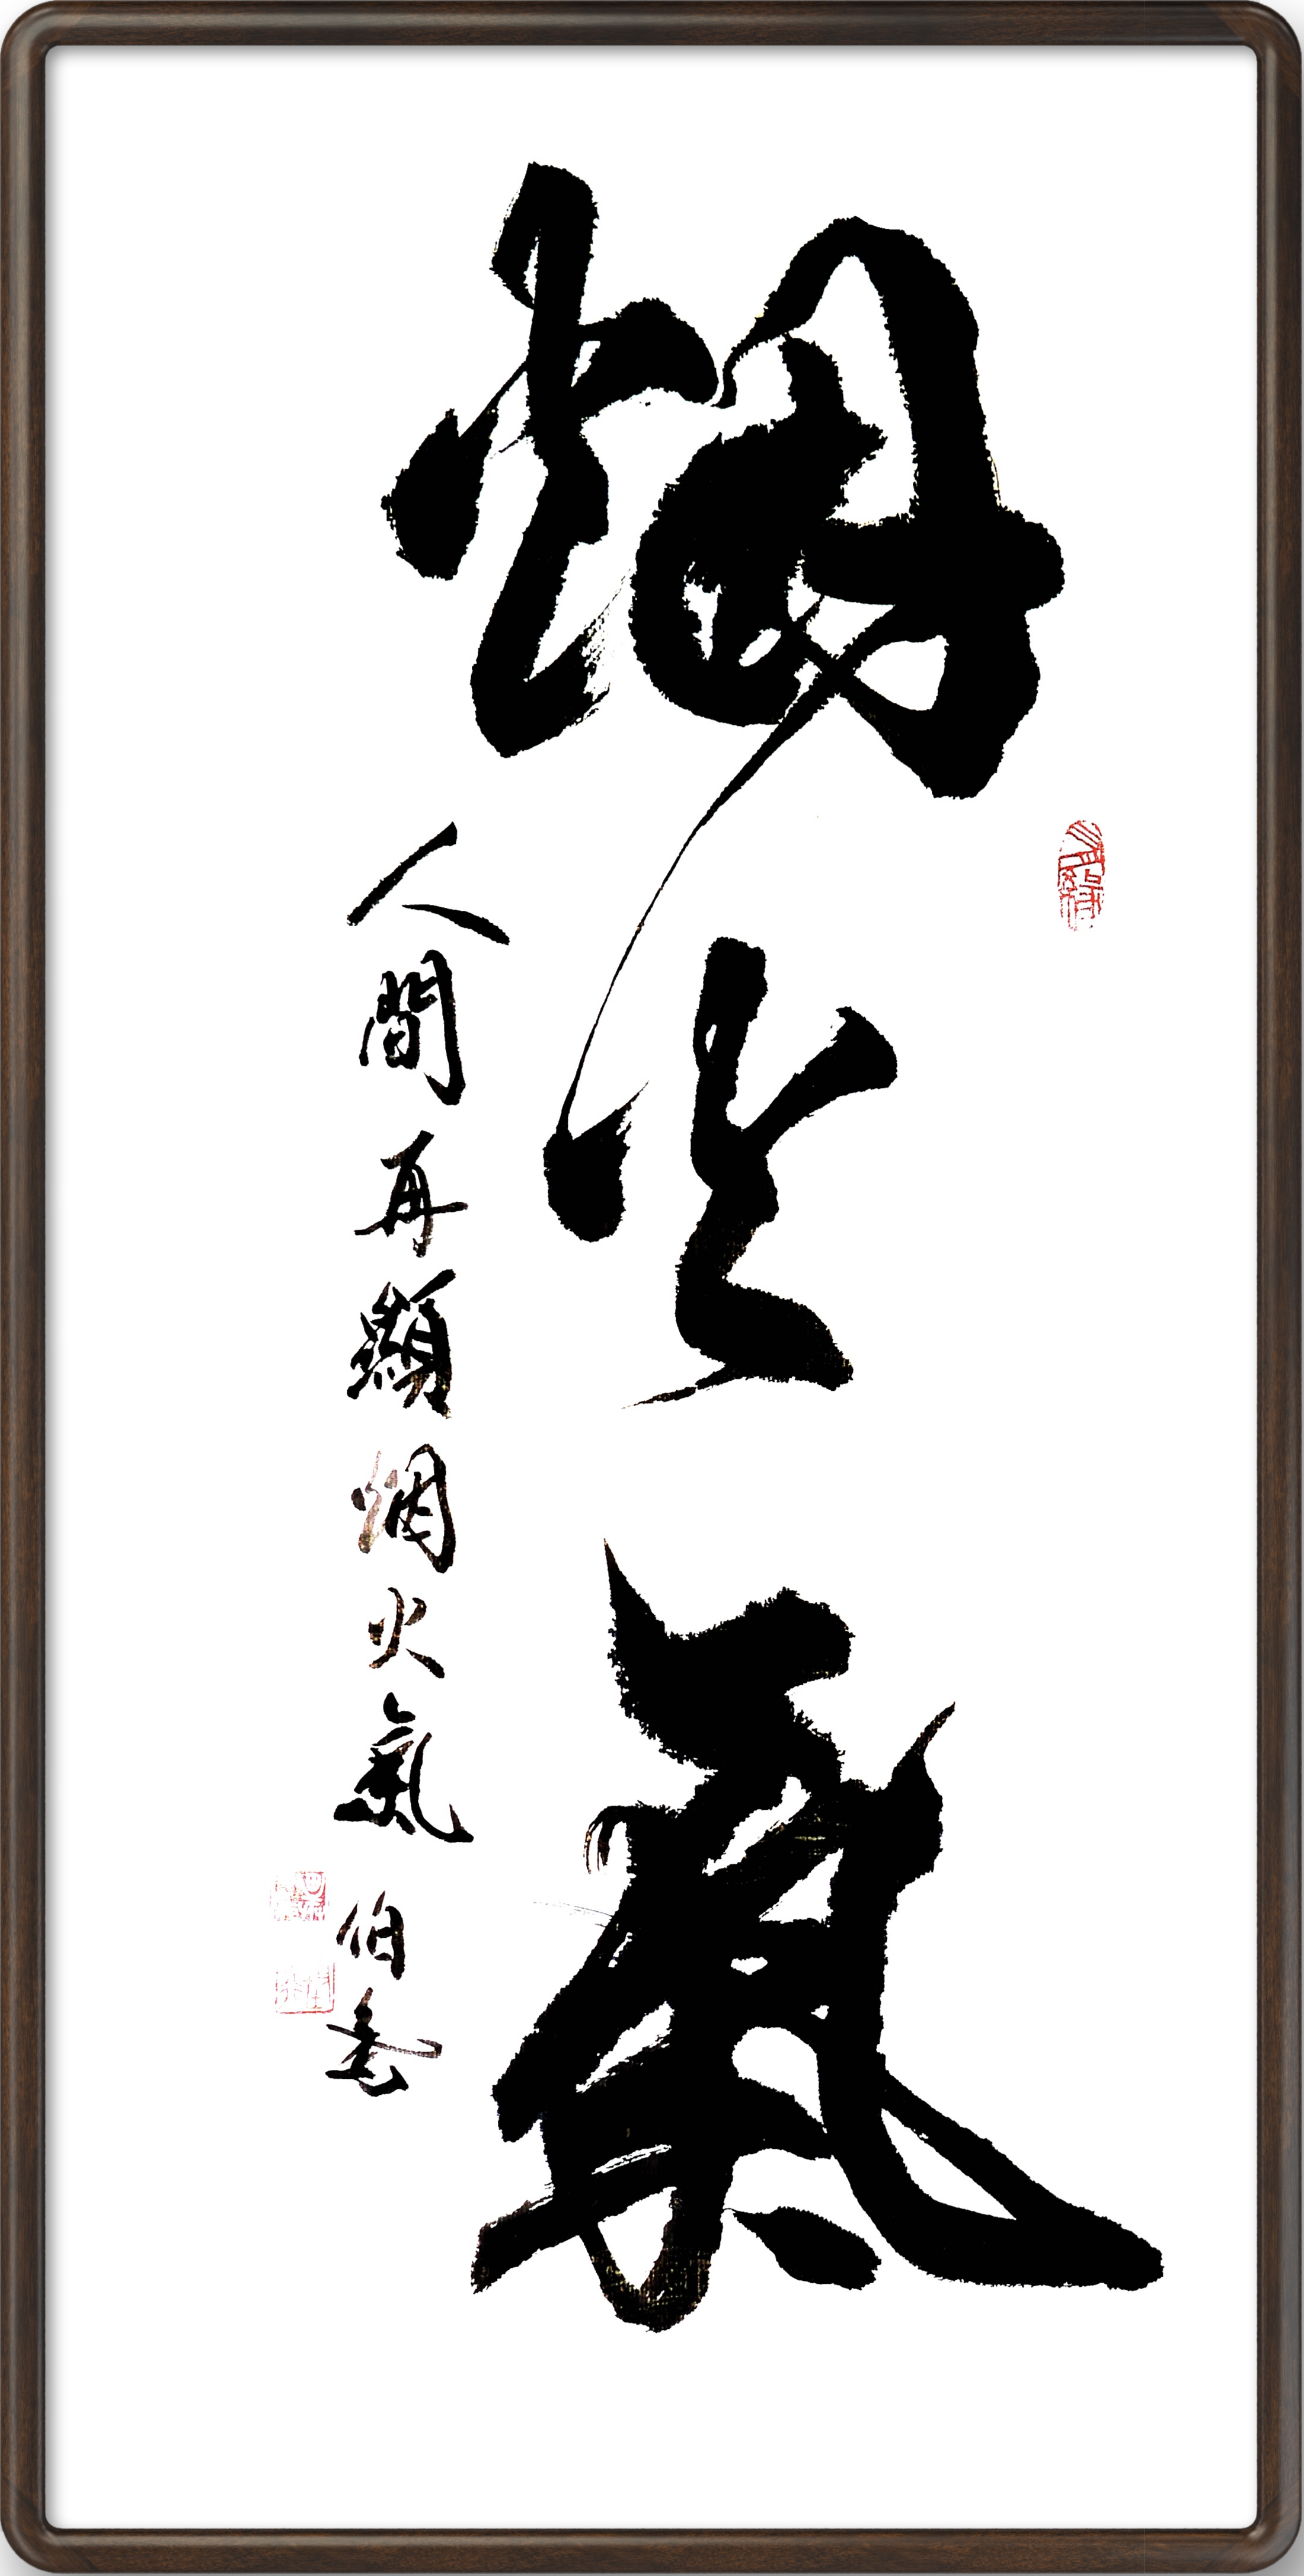 烟火氣
人間再顯烟火氣 伯